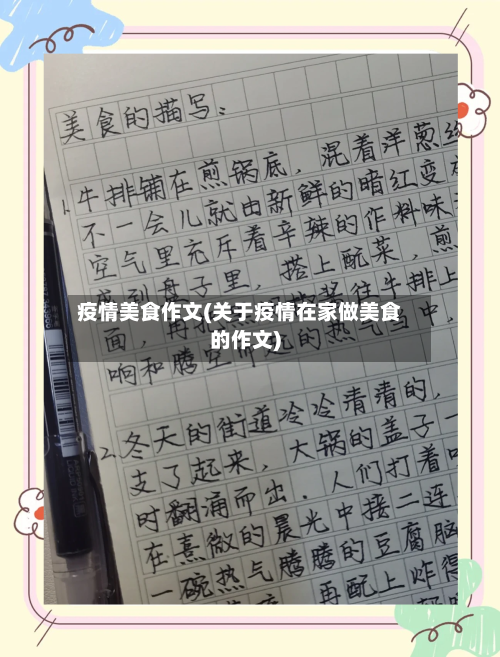 美食的描写：
1. 牛排铺在煎锅底，混着洋葱
不一会儿就由新鲜的暗红变
空气里充斥着辛辣的作料味
盘子里，搭上酡菜，煎
疫情美食作文(关于疫情在家做美食
的作文)
往牛排上
响和腾空而起的热气当中，
2. 冬天的街道冷冷清清的，
支了起来，大锅的盖子一
时翻涌而出．人们打着
在熹微的晨光中接二连
一碗热气腾腾的豆腐脑
再配上炸得